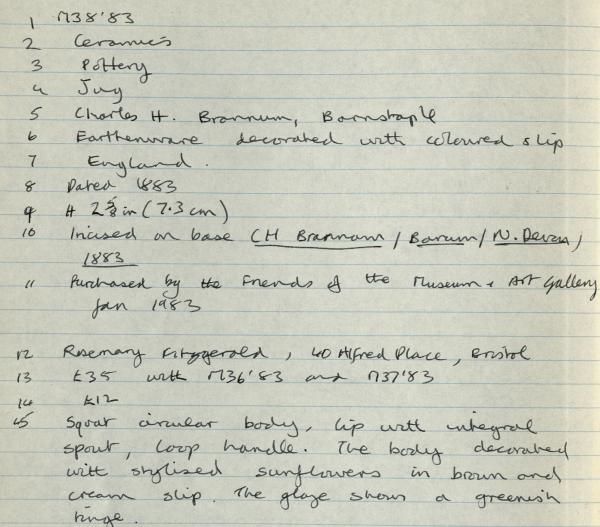 1 M38'83
2 Ceramics
3 Pottery
4 Jug
5 Charles H. Brannum, Barnstaple
6 Earthenware decorated with coloured slip
7 England.
8 Dated 1883
9 H 2⅞ in (7.3 cm)
10 Incised on base CH Brannam / Barum / N. Devon /
1883
11 Purchased by the Friends of the Museum + Art Gallery
Jan 1983
12 Rosemary Fitzgerald, 40 Alfred Place, Bristol
13 £35 with M36'83 and M37'83
14 £12
15 Squat circular body, lip with integral
spout, loop handle. The body decorated
with stylised sunflowers in brown and
cream slip. The glaze shows a greenish
tinge.